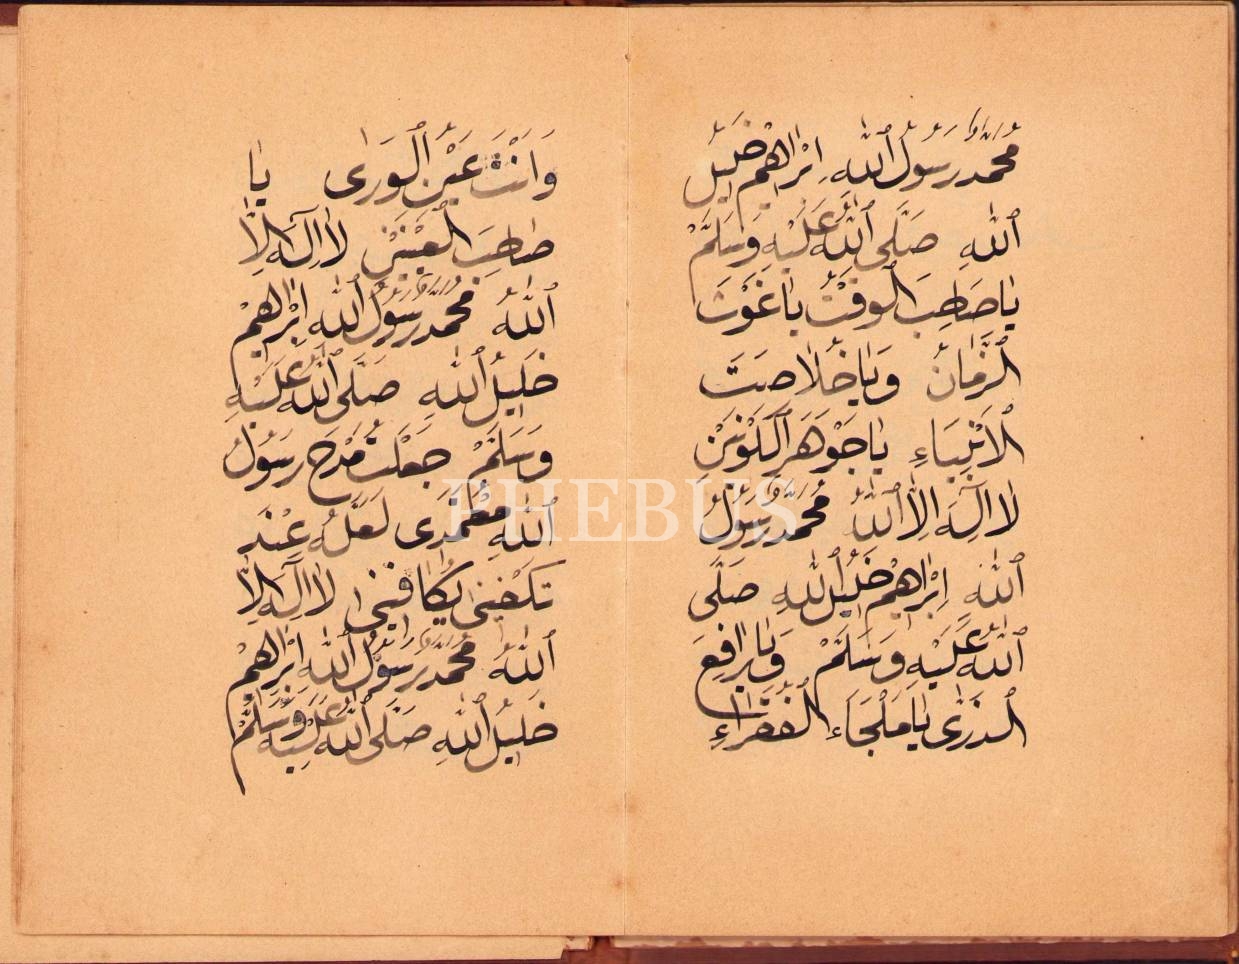 مُحَمَّدُ رَسُولُ ٱللهِ اِبْرَاهِيمْ خَلِيلُ
ٱللهِ صَلَّى ٱللهُ عَلَيْهِ وَسَلَّمْ
يَا صَاحِبَ الْوَقْتْ يَا غَوْثَ
الزَّمَانْ وَيَا خُلَاصَتَ
الْاَنْبِيَاءِ يَا جَوْهَرَ الْكَوْنَيْنِ
لَا اِلٰهَ اِلَّا ٱللهُ مُحَمَّدُ رَسُولُ
ٱللهِ اِبْرَاهِيمْ خَلِيلُ ٱللهِ صَلَّى
ٱللهُ عَلَيْهِ وَسَلَّمْ وَيَا رَافِعَ
الذرٰى يَا مَلْجَاءَ الْفُقَرَاءِ
وَاَنْتَ عَيْنُ الْوَرٰى يَا
صَاحِبَ لَا اِلٰهَ اِلَّا
ٱللهُ مُحَمَّدُ رَسُولُ ٱللهِ اِبْرَاهِيمْ
خَلِيلُ ٱللهِ صَلَّى ٱللهُ عَلَيْهِ
وَسَلَّمْ جَعَلْتُ مَدْحَ رَسُولُ
ٱللهِ مُعْتَمَدِى لَعَلَّهُ عِنْدَ
يُكَافِينِى لَا اِلٰهَ اِلَّا
ٱللهُ مُحَمَّدُ رَسُولُ ٱللهِ اِبْرَاهِيمْ
خَلِيلُ ٱللهِ صَلَّى ٱللهُ عَلَيْهِ وَسَلَّمْ
PHEBUS